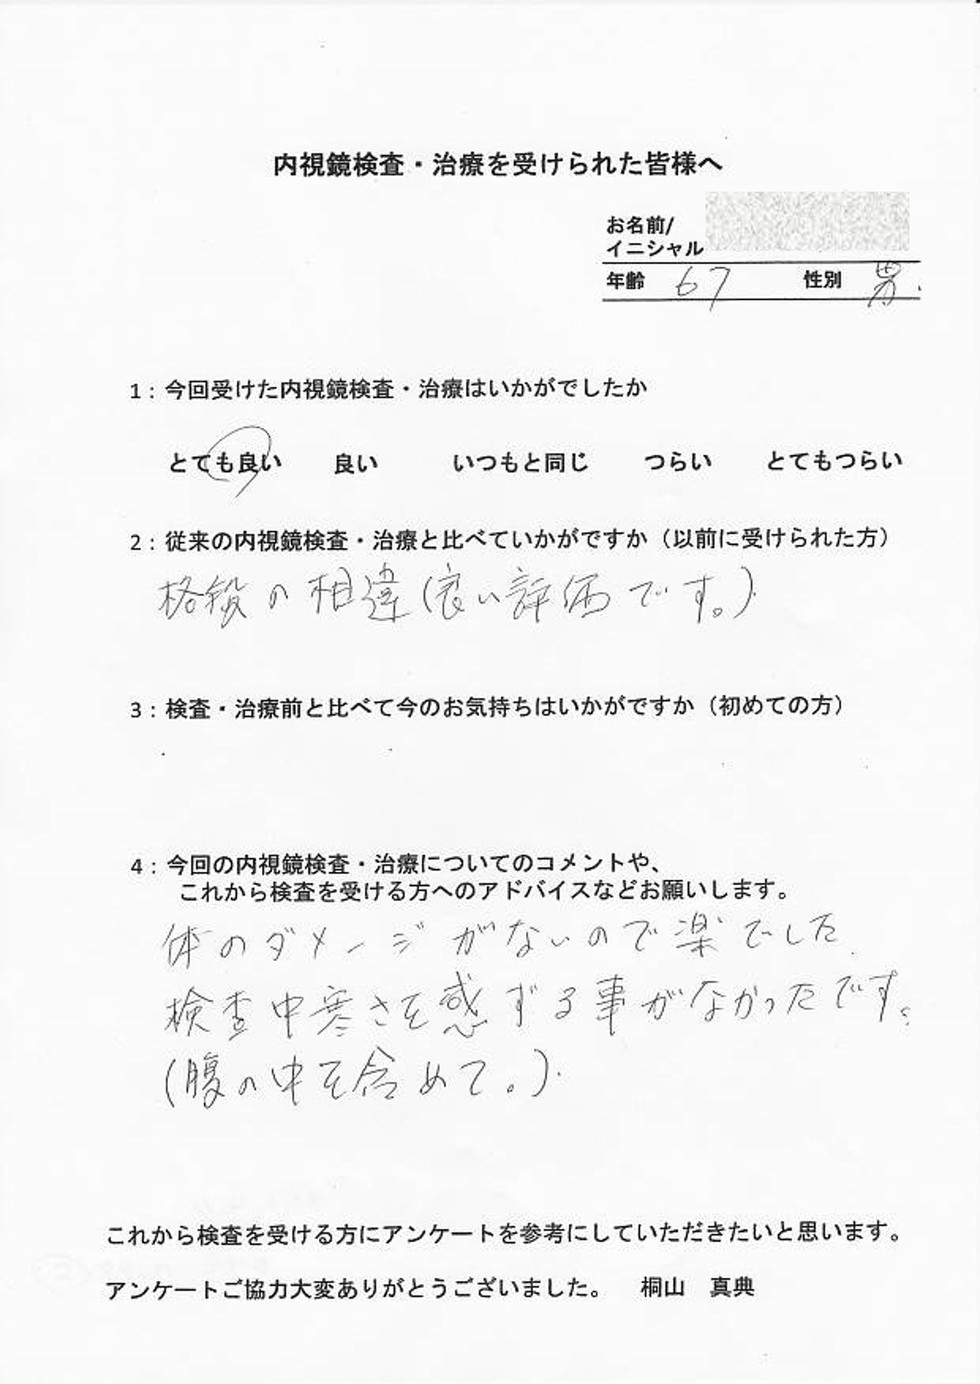 内視鏡検査・治療を受けられた皆様へ
お名前/
イニシャル
年齢 67 性別 男.
1：今回受けた内視鏡検査・治療はいかがでしたか
とても良い 良い いつもと同じ つらい とてもつらい
2：従来の内視鏡検査・治療と比べていかがですか（以前に受けられた方）
格段の相違(良い評価です。)
3：検査・治療前と比べて今のお気持ちはいかがですか（初めての方）
4：今回の内視鏡検査・治療についてのコメントや、
これから検査を受ける方へのアドバイスなどお願いします。
体のダメージがないので楽でした.
検査中寒さを感ずる事がなかったです。
(腹の中を含めて。)
これから検査を受ける方にアンケートを参考にしていただきたいと思います。
アンケートご協力大変ありがとうございました。 桐山 真典